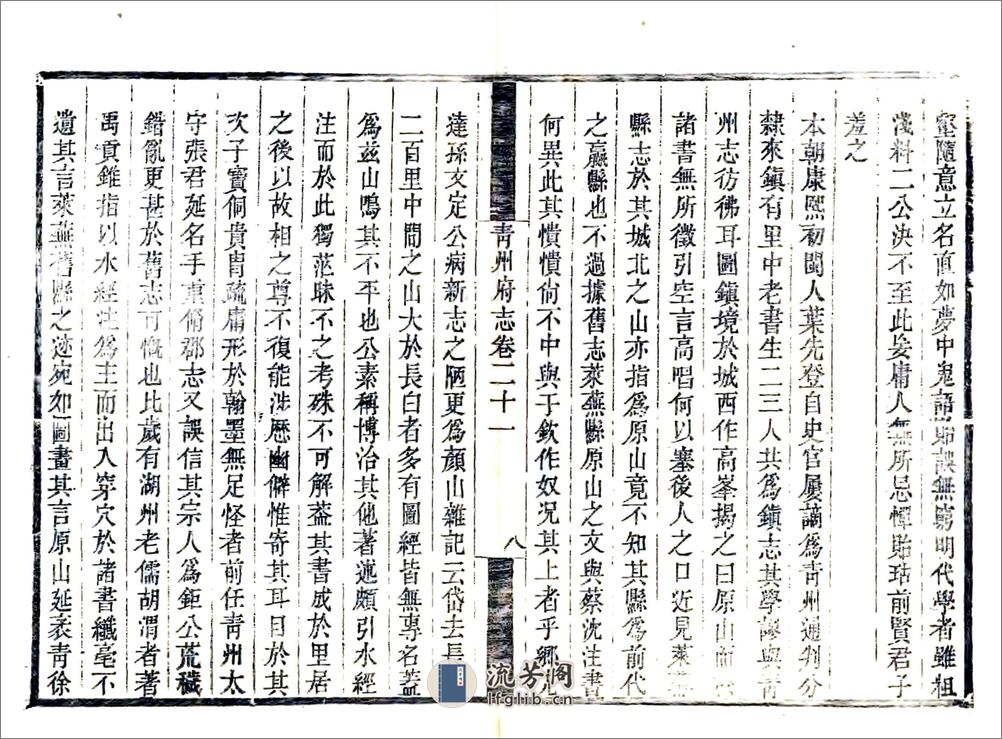 壑隨意立名直如夢中鬼語貽誤無窮明代學者雖粗
淺料二公決不至此妄庸人無所忌憚貽玷前賢君子
羞之
本朝康熙初閩人葉先登自史官屢謫爲靑州通判分
隸來鎭有里中老書生二三人共爲鎭志其學謬與靑
州志彷彿耳圖鎭境於城西作高峯揭之曰原山而
諸書無所徵引空言高唱何以塞後人之口近見萊蕪
縣志於其城北之山亦指爲原山竟不知其縣爲前代
之嬴縣也不過據舊志萊蕪縣原山之文與蔡沈注書
何異此其憒憒尙不中與于欽作奴况其上者乎鄉
靑州府志卷二十一
八
達孫文定公病新志之陋更爲顔山雜記云岱去長
二百里中間之山大於長白者多有圖經皆無專名蓋
爲兹山鳴其不平也公素稱博洽其他著述頗引水經
注而於此獨茫昧不之考殊不可解蓋其書成於里居
之後以故相之尊不復能涉歷幽僻惟寄其耳目於其
次子寶侗貴胄疏庸形於翰墨無足怪者前任靑州太
守張君延名手重脩郡志又誤信其宗人爲鉅公荒穢
錯亂更甚於舊志可慨也比歲有湖州老儒胡渭者著
禹貢錐指以水經注爲主而出入穿穴於諸書纖毫不
遺其言萊蕪舊縣之迹宛如圖畫其言原山延袤靑徐
流芳閣
lfglib.cn